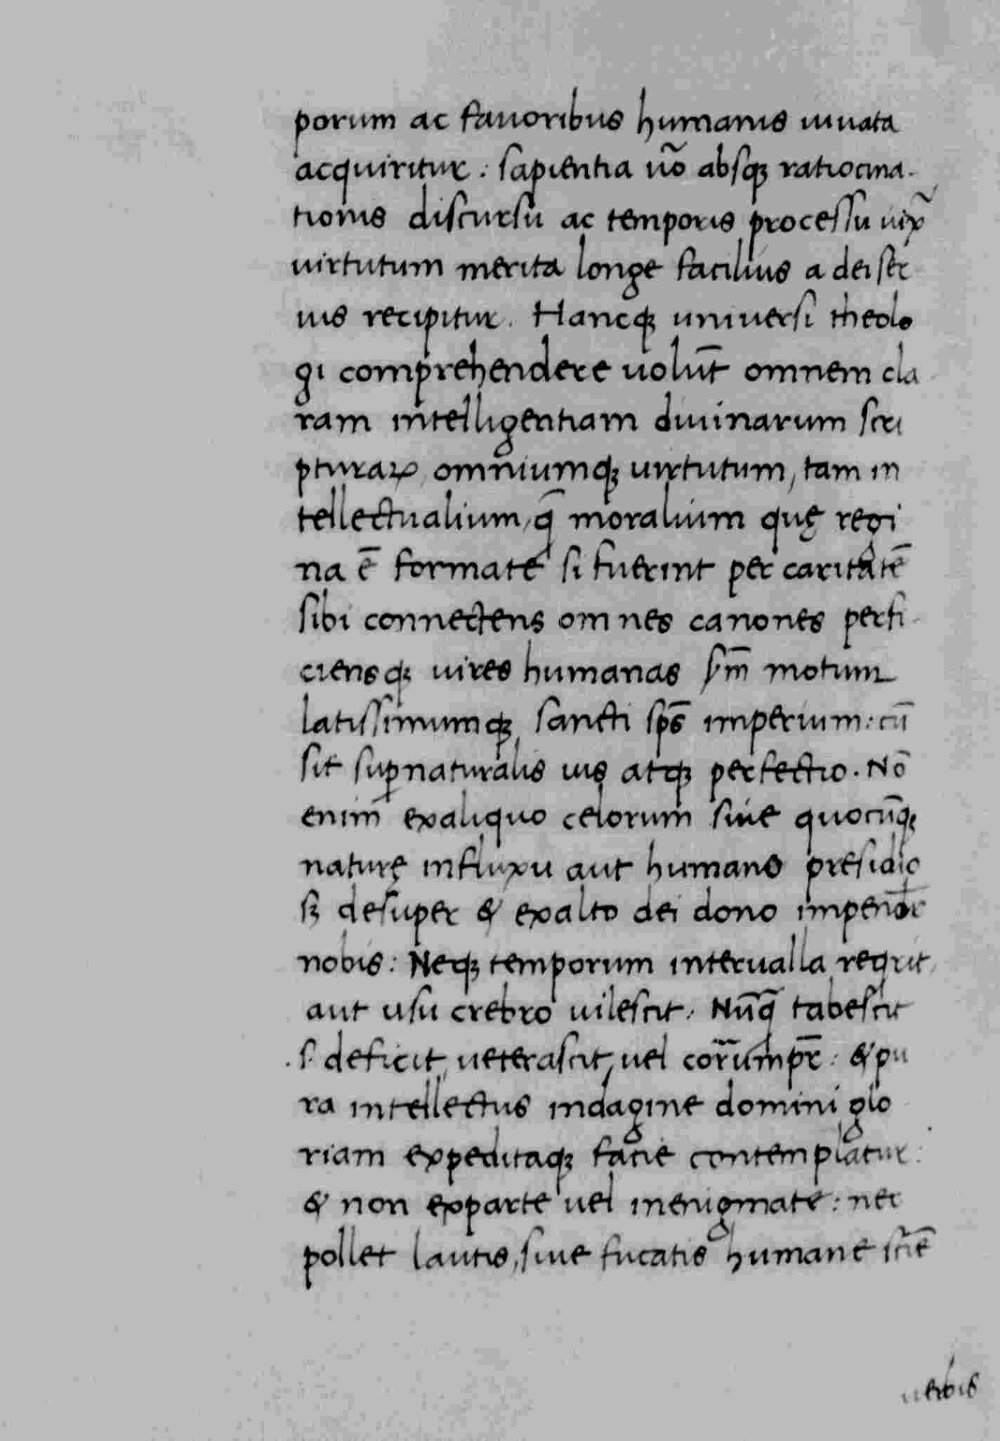 porum ac fauoribus humanis iuuata
acquiritur: sapientia uo᷉ absqꝫ ratiocina-
tionis discursu ac temporis processu uix᷉
uirtutum merita longe facilius a dei ser
uis recipitur. Hancqꝫ uniuersi theolo
gi comprehendere uolūt omnem cla
ram intelligentiam diuinarum scri
pturaꝝ, omniumqꝫ uirtutum, tam in
tellectualium, q̄ moralium quę regi
na ē formate si fuerint per caritatē
sibi connectens omnes canones perfi-
ciensqꝫ uires humanas s̄m motum
latissimumqꝫ sancti sp̄s imperium: cū
sit suꝑnaturalis uis atqꝫ perfectio. Nō
enim exaliquo celorum siue quocūqꝫ
naturę influxu aut humano presidio
sꝫ desuper & exalto dei dono impendr̄
nobis: Neqꝫ temporum interualla reqrit,
aut usu crebro uilescit. Nūq̄ tabescit
.s. deficit, ueterascit, uel corrumpr̄: & pu
ra intellectus indagine domini glo
riam expeditaqꝫ facie contemplatur:
& non exparte uel inenigmate: nec
pollet lautis, siue fucatis humane sciē
uerbis